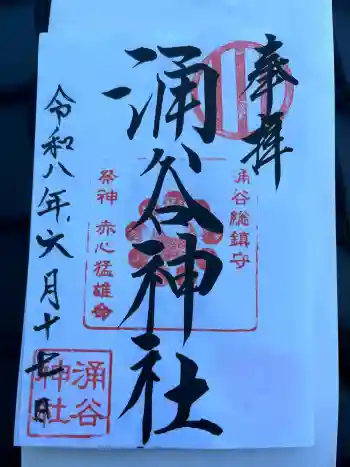 奉拝
涌谷総鎮守
涌谷神社
祭神 赤心猛雄命
令和八年六月十七日
涌谷
神社